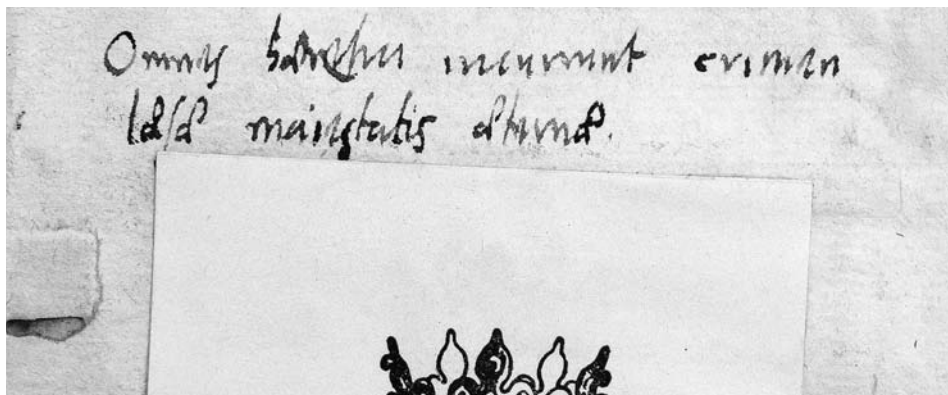 Omnes hæretici incurrunt crimen
læsæ maiestatis æternæ.